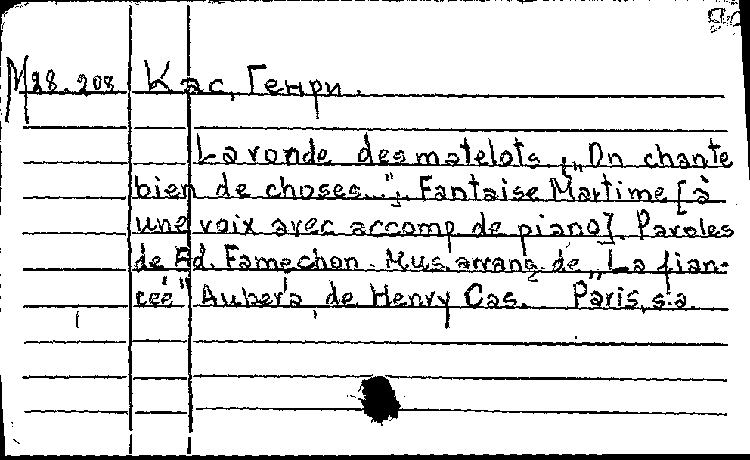 M28.208 Кас, Генри.
La ronde des matelots. „On chante
bien de choses...". Fantaise Martime [à
une voix avec accomp de piano]. Paroles
de Ed. Famechon. Mus. arrang. de „La fian-
ceé" Auber'a, de Henry Cas. Paris, s.a.